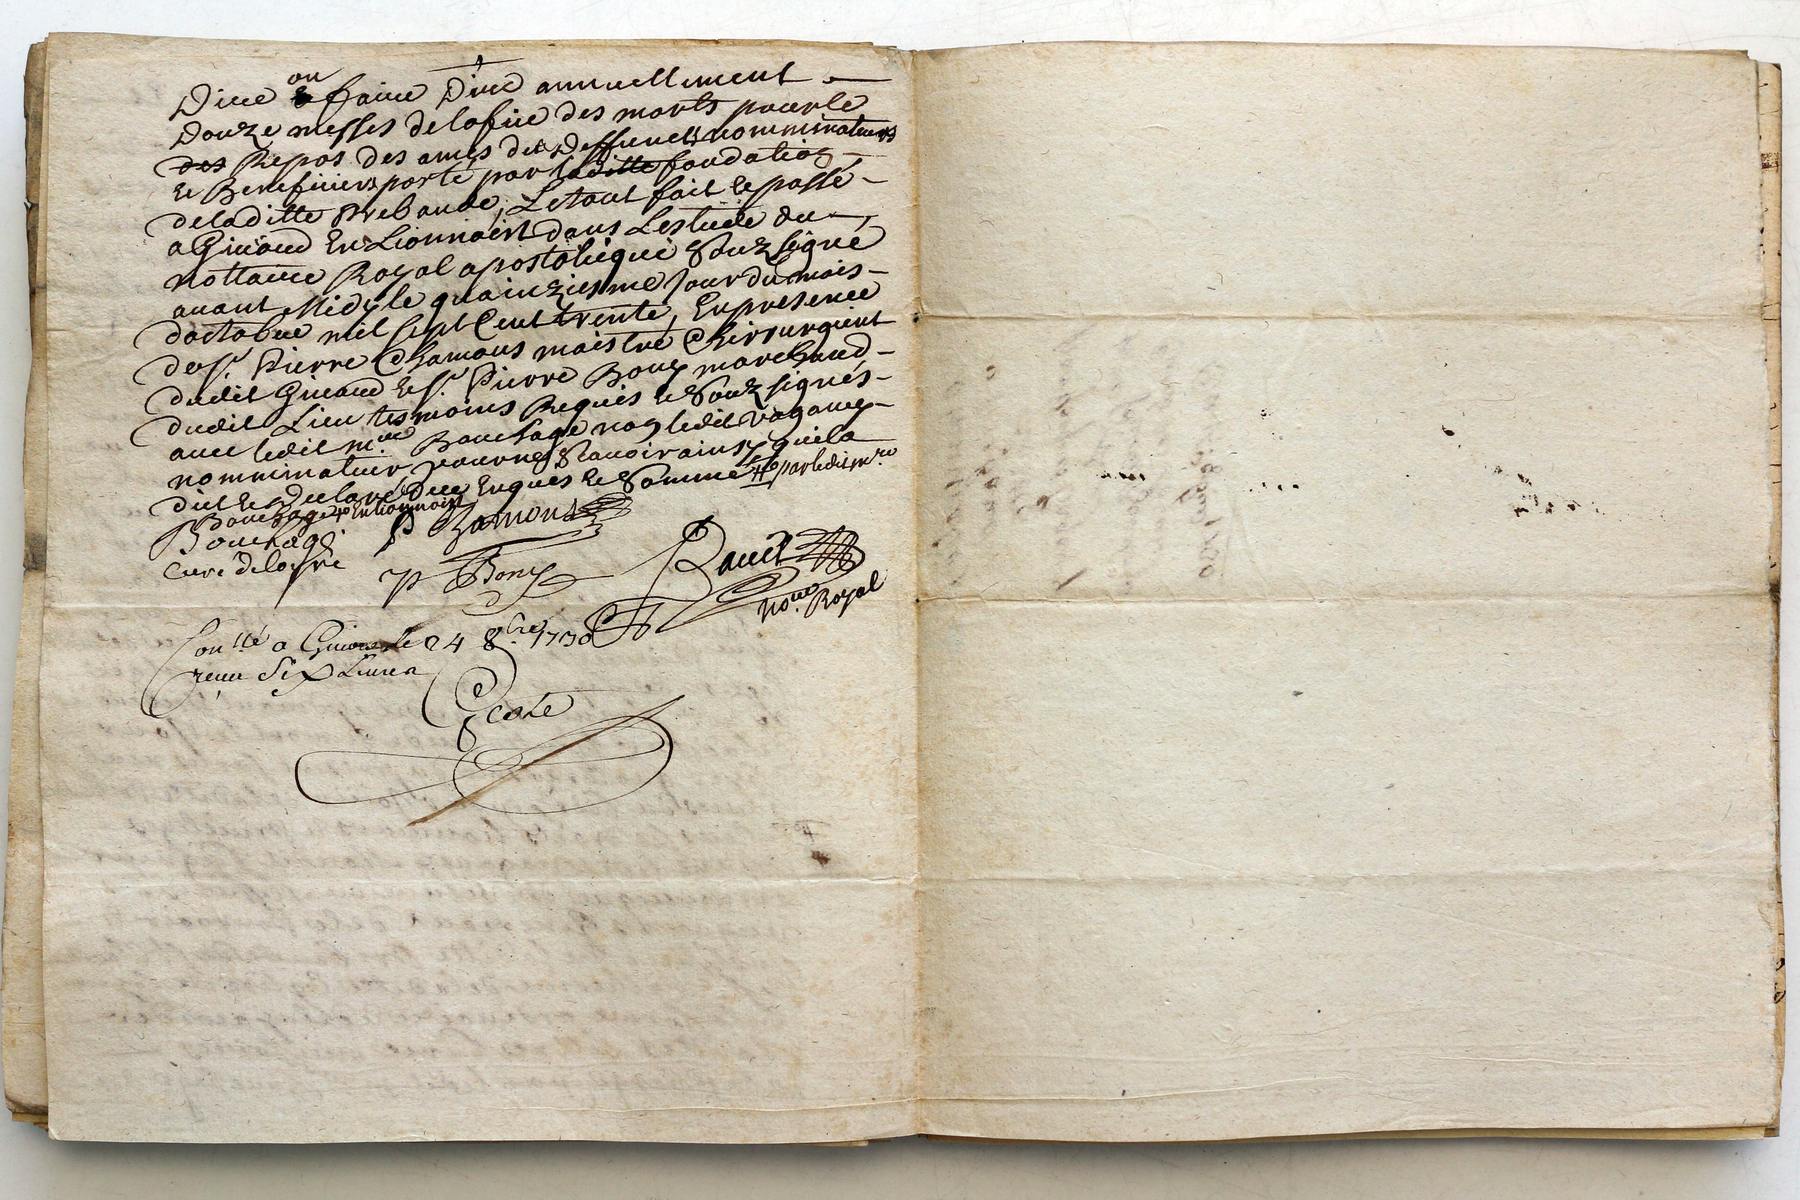 Dire ou faire Dire annuellement
Douze messes de la fiie des morts pour le
Repos des ames des Deffuncts nomminateurs
et Beneficiers porté par laditte fondation
de laditte Prebande, Le tout fait et passé
a Givord En Lionnois dans Lestude du
nottaire Royal apostolique Souz signé
avant Midy le quainziesme Jour du mois
doctobre mil sept Cent trente, En presence
de sr. Pierre Chamous maistre Chirurgient
dudit Givord et sr. Pierre Bony marchand
dudit Lieu tesmoins Requis et Souz signés
avec ledit mre Bouchage non ledit
nomminateur pour ne Scavoir ainsy quil a
dit et Declaré De ce Enquis et Sommé par ledit mre
Bouchage En Lionnois
Bouchage
curé de loyre
P Bony
noire Royal
Conllé a Givors le 24 8bre 1730
reçu Six Livres